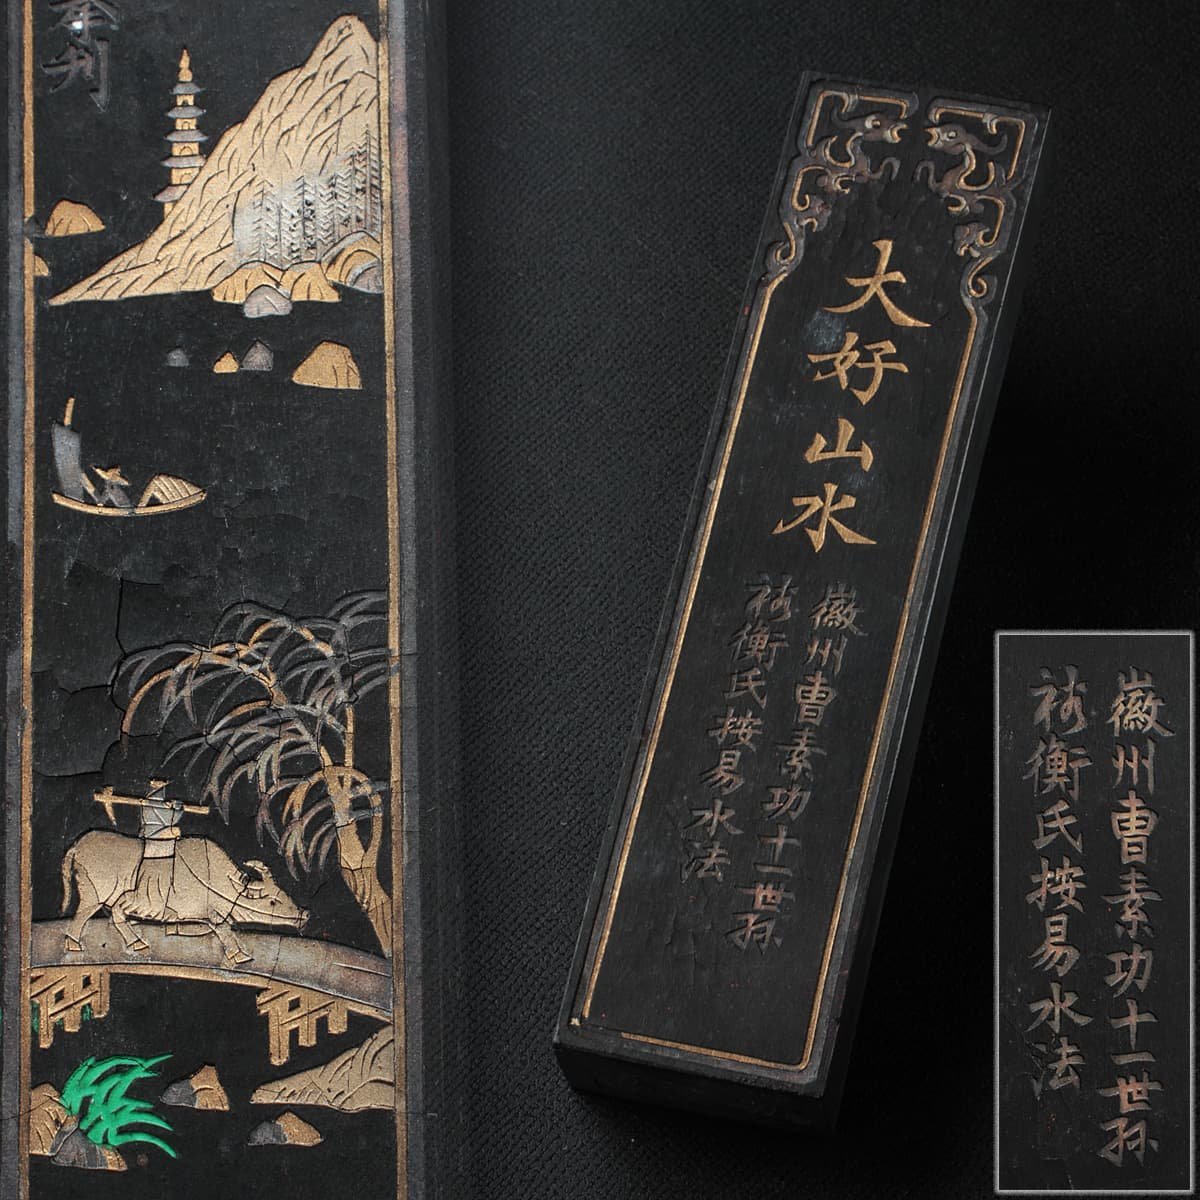 大好山水
徽州曹素功十一世孙
衡氏按易水法
徽州曹素功十一世孙
衡氏按易水法